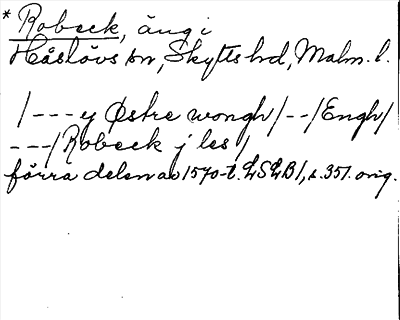 * Robeck, äng i
Håslövs sn, Skytts hd, Malm. l.
/---y Østre wongh/--/Engh/
---/Robeck j les/
förra delen av 1570-t. LSLB1, s. 351. orig.